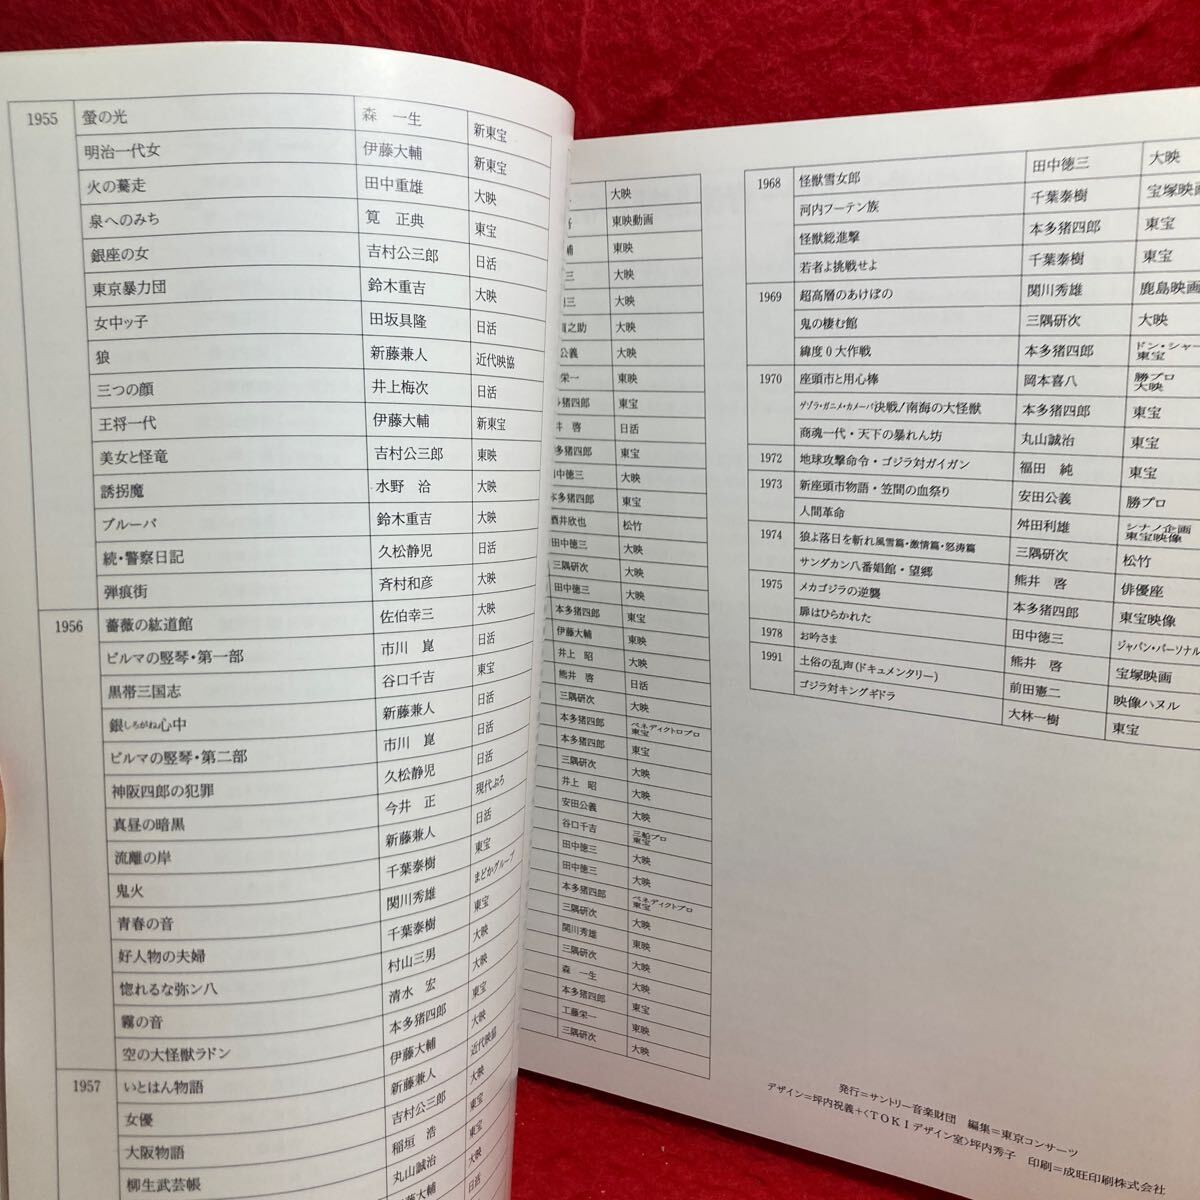 1955 螢の光 森 一生 新東宝
明治一代女 伊藤大輔 新東宝
火の驀走 田中重雄 大映
泉へのみち 筧 正典 東宝
銀座の女 吉村公三郎 日活
東京暴力団 鈴木重吉 大映
女中ッ子 田坂具隆 日活
狼 新藤兼人 近代映協
三つの顔 井上梅次 日活
王将一代 伊藤大輔 新東宝
美女と怪竜 吉村公三郎 東映
誘拐魔 水野 洽 大映
ブルーバ 鈴木重吉 大映
続・警察日記 久松静児 日活
弾痕街 斉村和彦 大映
1956 薔薇の紘道館 佐伯幸三 大映
ビルマの竪琴・第一部 市川 崑 日活
黒帯三国志 谷口千吉 東宝
銀しろがね心中 新藤兼人 日活
ビルマの竪琴・第二部 市川 崑 日活
神阪四郎の犯罪 久松静児 日活
真昼の暗黒 今井 正 現代ぷろ
流離の岸 新藤兼人 日活
鬼火 千葉泰樹 東宝
青春の音 関川秀雄 まどかグループ
好人物の夫婦 千葉泰樹 東宝
惚れるな弥ン八 村山三男 大映
霧の音 清水 宏 大映
空の大怪獣ラドン 本多猪四郎 東宝
1957 いとはん物語 伊藤大輔 大映
女優 新藤兼人 近代映協
大阪物語 吉村公三郎 大映
柳生武芸帳 稲垣 浩 東宝
丸山誠治 東宝
伊藤大輔 大映
日活
大映
東映動画
東映
大映
大映
之助 大映
公義 大映
栄一 東映
猪四郎 東宝
井 啓 日活
多猪四郎 東宝
田中徳三 大映
本多猪四郎 東宝
酒井欣也 松竹
田中徳三 大映
三隅研次 大映
田中徳三 大映
本多猪四郎 東宝
伊藤大輔 東映
井上 昭 大映
熊井 啓 日活
三隅研次 大映
本多猪四郎 ベネディクトプロ
東宝
本多猪四郎 東宝
三隅研次 大映
井上 昭 大映
安田公義 大映
谷口千吉 三船プロ
東宝
田中徳三 大映
田中徳三 大映
本多猪四郎 ベネディクトプロ
東宝
三隅研次 大映
関川秀雄 東映
三隅研次 大映
森 一生 大映
本多猪四郎 東宝
工藤栄一 東映
三隅研次 大映
1968 怪獣雪女郎 田中徳三 大映
河内フーテン族 千葉泰樹 宝塚映画
怪獣総進撃 本多猪四郎 東宝
若者よ挑戦せよ 千葉泰樹 東宝
1969 超高層のあけぼの 関川秀雄 鹿島映画
鬼の棲む館 三隅研次 大映
緯度0大作戦 本多猪四郎 ドン・シャー
東宝
1970 座頭市と用心棒 岡本喜八 勝プロ
大映
ゲゾラ・ガニメ・カメーバ決戦!南海の大怪獣 本多猪四郎 東宝
商魂一代・天下の暴れん坊 丸山誠治 東宝
1972 地球攻撃命令・ゴジラ対ガイガン 福田 純 東宝
1973 新座頭市物語・笠間の血祭り 安田公義 勝プロ
人間革命 舛田利雄 シナノ企画
東宝映像
1974 狼よ落日を斬れ風雪篇・激情篇・怒涛篇 三隅研次 松竹
サンダカン八番娼館・望郷 熊井 啓 俳優座
1975 メカゴジラの逆襲 本多猪四郎 東宝映像
扉はひらかれた 田中徳三 ジャパン・パーソナル
1978 お吟さま 熊井 啓 宝塚映画
1991 土俗の乱声(ドキュメンタリー) 前田憲二 映像ハヌル
ゴジラ対キングギドラ 大林一樹 東宝
発行=サントリー音楽財団 編集=東京コンサーツ
デザイン=坪内祝義+〈TOKIデザイン室〉坪内秀子 印刷=成旺印刷株式会社